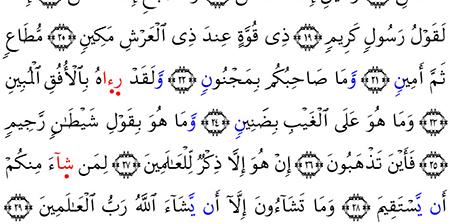 لَقَوْلُ رَسُولٍ كَرِيمٍ ﴿١٩﴾ ذِى قُوَّةٍ عِندَ ذِى ٱلْعَرْشِ مَكِينٍ ﴿٢٠﴾ مُطَاعٍ
ثَمَّ أَمِينٍ ﴿٢١﴾ وَّمَا صَاحِبُكُم بِمَجْنُونٍ ﴿٢٢﴾ وَّلَقَدْ رِءَاهُ بِٱلْأُفُقِ ٱلْمُبِينِ
﴿٢٣﴾ وَمَا هُوَ عَلَى ٱلْغَيْبِ بِضَنِينٍ ﴿٢٤﴾ وَّمَا هُوَ بِقَوْلِ شَيْطَٰنٍ رَّجِيمٍ
﴿٢٥﴾ فَأَيْنَ تَذْهَبُونَ ﴿٢٦﴾ إِنْ هُوَ إِلَّا ذِكْرٌ لِّلْعَٰلَمِينَ ﴿٢٧﴾ لِمَن شِآءَ مِنكُمْ
أَن يَّسْتَقِيمَ ﴿٢٨﴾ وَمَا تَشَآءُونَ إِلَّآ أَن يَّشَآءَ ٱللَّهُ رَبُّ ٱلْعَٰلَمِينَ ﴿٢٩﴾